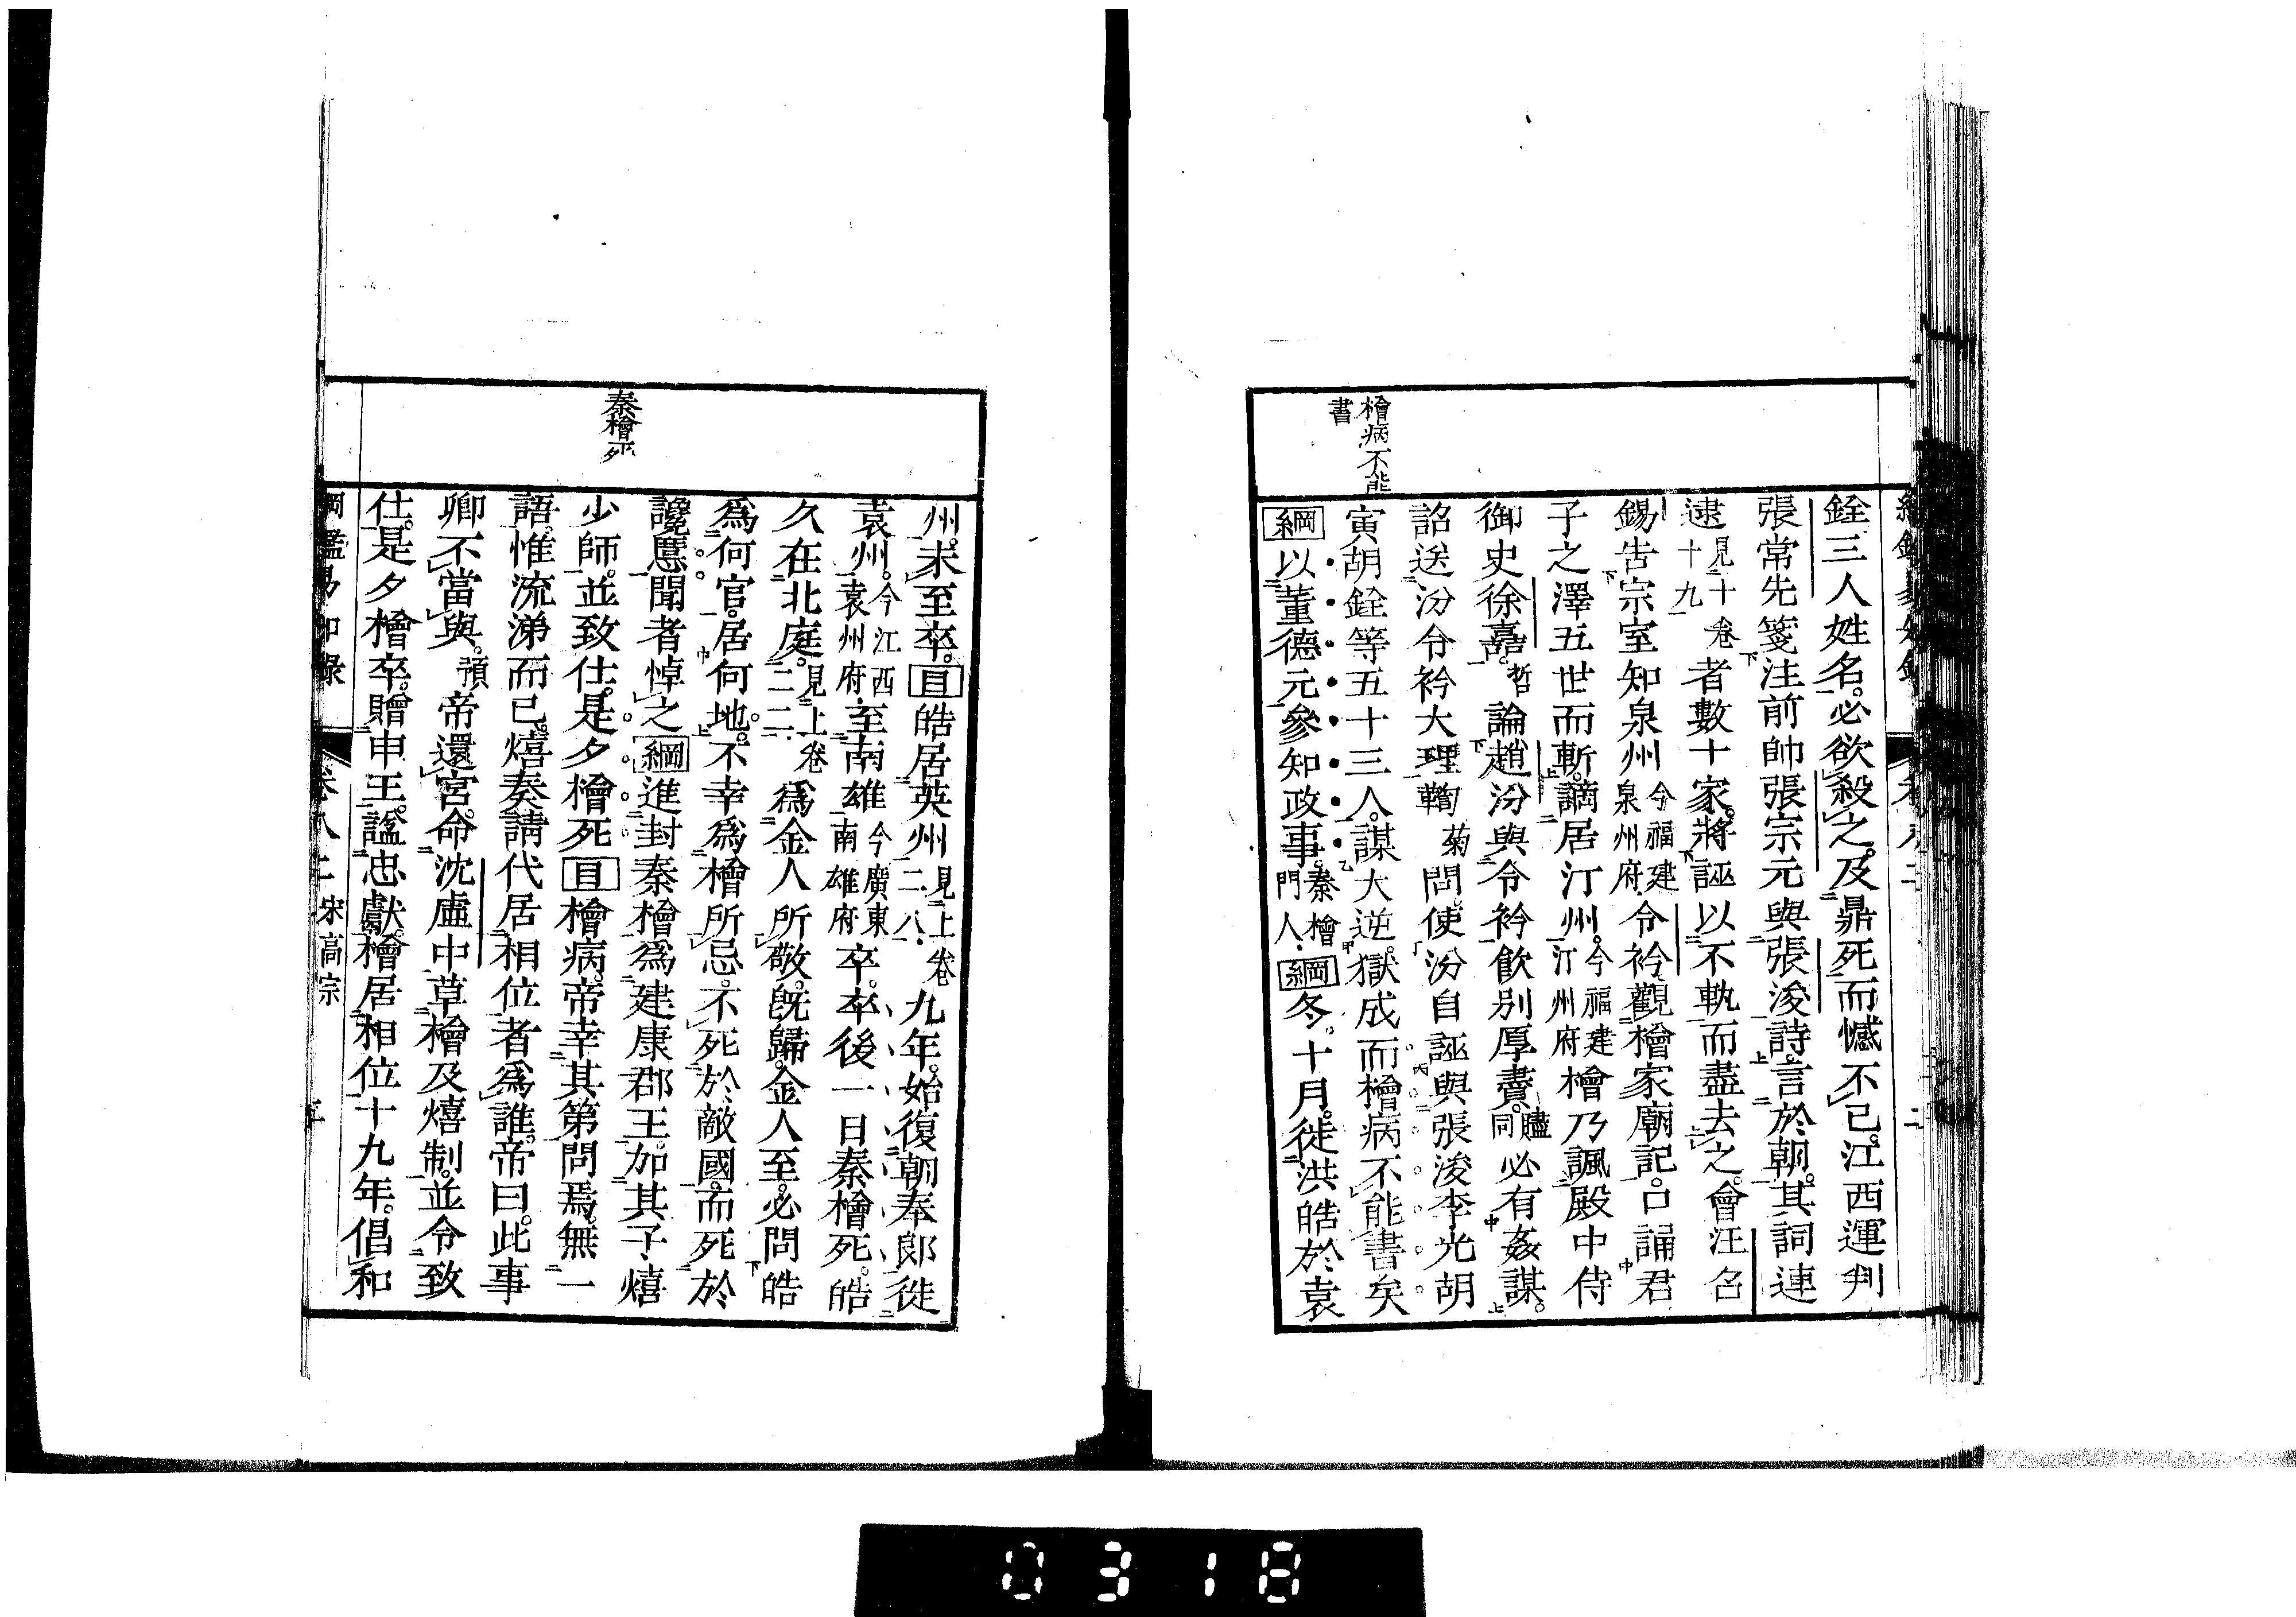 銓三人姓名。必欲殺之。及鼎死而憾不已。江西運判
張常先箋注前帥張宗元與張浚詩。言於朝。其詞連
逮見十卷十九者數十家。將誣以不軌而盡去之。會汪召
錫告宗室知泉州今福建泉州府令衿觀檜家廟記。口誦君
子之澤五世而斬。謫居汀州。今福建汀州府檜乃諷殿中侍
御史徐嚞。哲論趙汾與令衿飲別厚賮。贐同必有姦謀。
詔送汾令衿大理鞫菊問。使汾自誣與張浚李光胡
寅胡銓等五十三人。謀大逆。獄成而檜病不能書矣
綱以董德元參知政事。秦檜門人綱冬。十月。徙洪皓於袁
檜病不能
書
州。未至卒。目皓居英州見上卷二八九年。始復朝奉郞。徙
袁州。今江西袁州府至南雄今廣東南雄府卒。卒後一日秦檜死。皓
久在北庭。見上卷二二爲金人所敬。旣歸。金人至。必問皓
爲何官。居何地。不幸爲檜所忌。不死於敵國。而死於
讒慝。聞者悼之綱進封秦檜爲建康郡王。加其子熺
少師。並致仕。是夕檜死目檜病。帝幸其第問焉。無一
語。惟流涕而已。熺奏請代居相位者爲誰。帝曰。此事
卿不當與。預帝還宮。命沈虛中草檜及熺制。並令致
仕。是夕檜卒。贈申王。謚忠獻。檜居相位十九年。倡和
秦檜死
綱鑑易知錄 卷八二 宋高宗